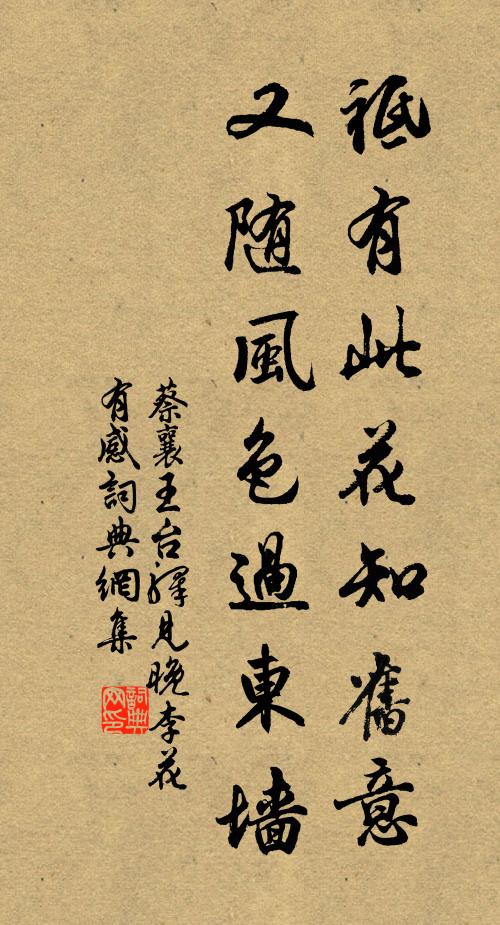 祗有此花知舊意
又随風色過東墙
蔡襄王台驛見晚李花
有感詞典網集
詞典网印